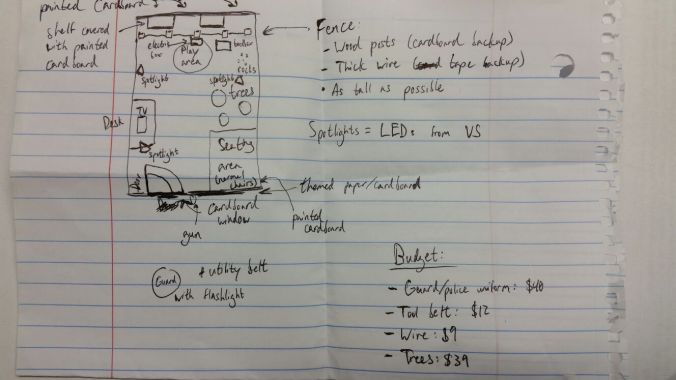 painted Cardboard
shelf covered
with painted
cardboard
electric
box
Play
area
rocks
spotlight
spotlight
trees
TV
Desk
spotlight
Seating
area
(normal
chairs)
Door
Cardboard
window
gun
themed paper/cardboard
painted
cardboard
Fence:
- Wood posts (cardboard backup)
- Thick wire (tape backup)
• As tall as possible
Spotlights = LEDs from VS
Guard
+ utility belt
with flashlight
Budget:
- Guard/police uniform: $40
- Tool belt: $12
- Wire: $9
- Trees: $39